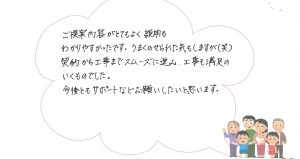 ご提案内容がとてもよく説明も
わかりやすかったです。うまくのせられた気もしますが(笑)
契約から工事までスムーズに進み、工事も満足の
いくものでした。
今後ともサポートなどお願いしたいと思います。